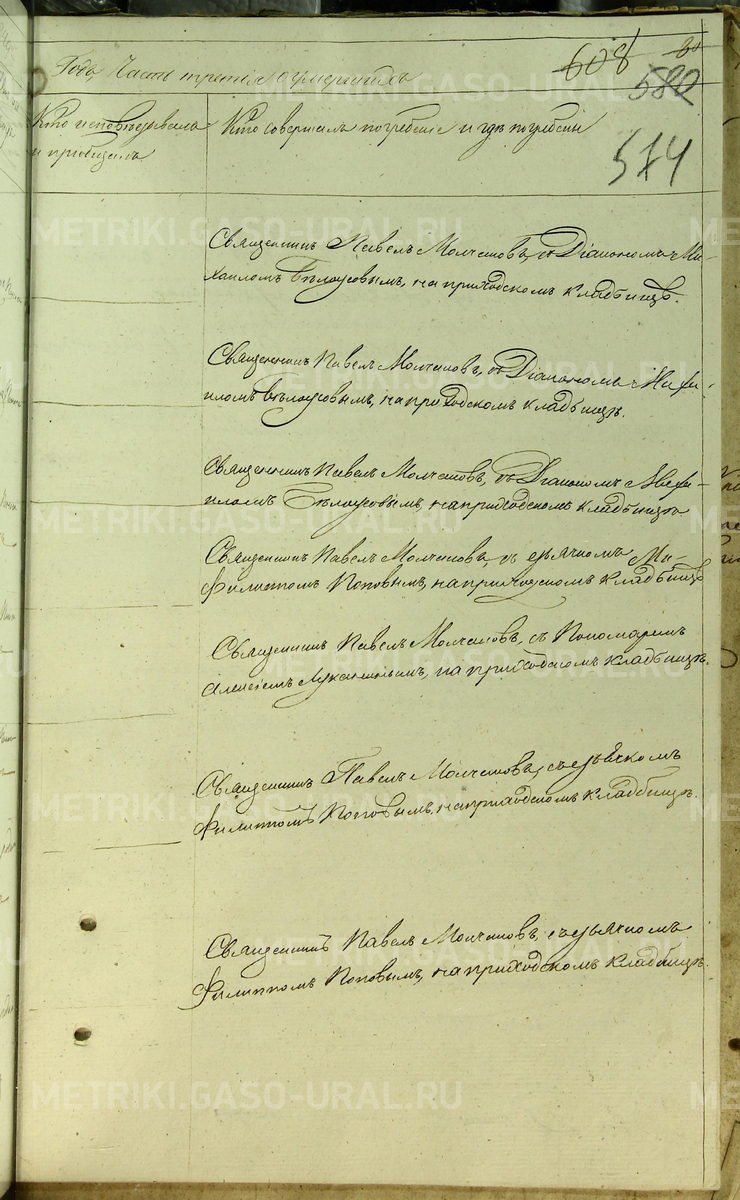 608 80
582
Года, Часть третія о умершихъ
Кто исповѣдывалъ
и пріобщалъ
Кто совершалъ погребеніе и гдѣ погребены
574
Священникъ Павелъ Молчановъ, съ Діакономъ Ми-
хаиломъ Бѣлоусовымъ, на приходскомъ кладбищѣ.
Священникъ Павелъ Молчановъ, съ Діакономъ Миха-
иломъ Бѣлоусовымъ, на приходскомъ кладбищѣ.
Священникъ Павелъ Молчановъ, съ Діакономъ Миха-
иломъ Бѣлоусовымъ, на приходскомъ кладбищѣ
Священникъ Павелъ Молчановъ, съ дьячкомъ
Филиппомъ Поповымъ, на приходскомъ кладбищѣ
Священникъ Павелъ Молчановъ, съ Пономаремъ
Алексіемъ Луканинымъ, на приходскомъ кладбищѣ.
Священникъ Павелъ Молчановъ, съ дьячкомъ
Филиппомъ Поповымъ, на приходскомъ кладбищѣ.
Священникъ Павелъ Молчановъ, съ дьячкомъ
Филиппомъ Поповымъ, на приходскомъ кладбищѣ.
METRIKI.GASO-URAL.RU